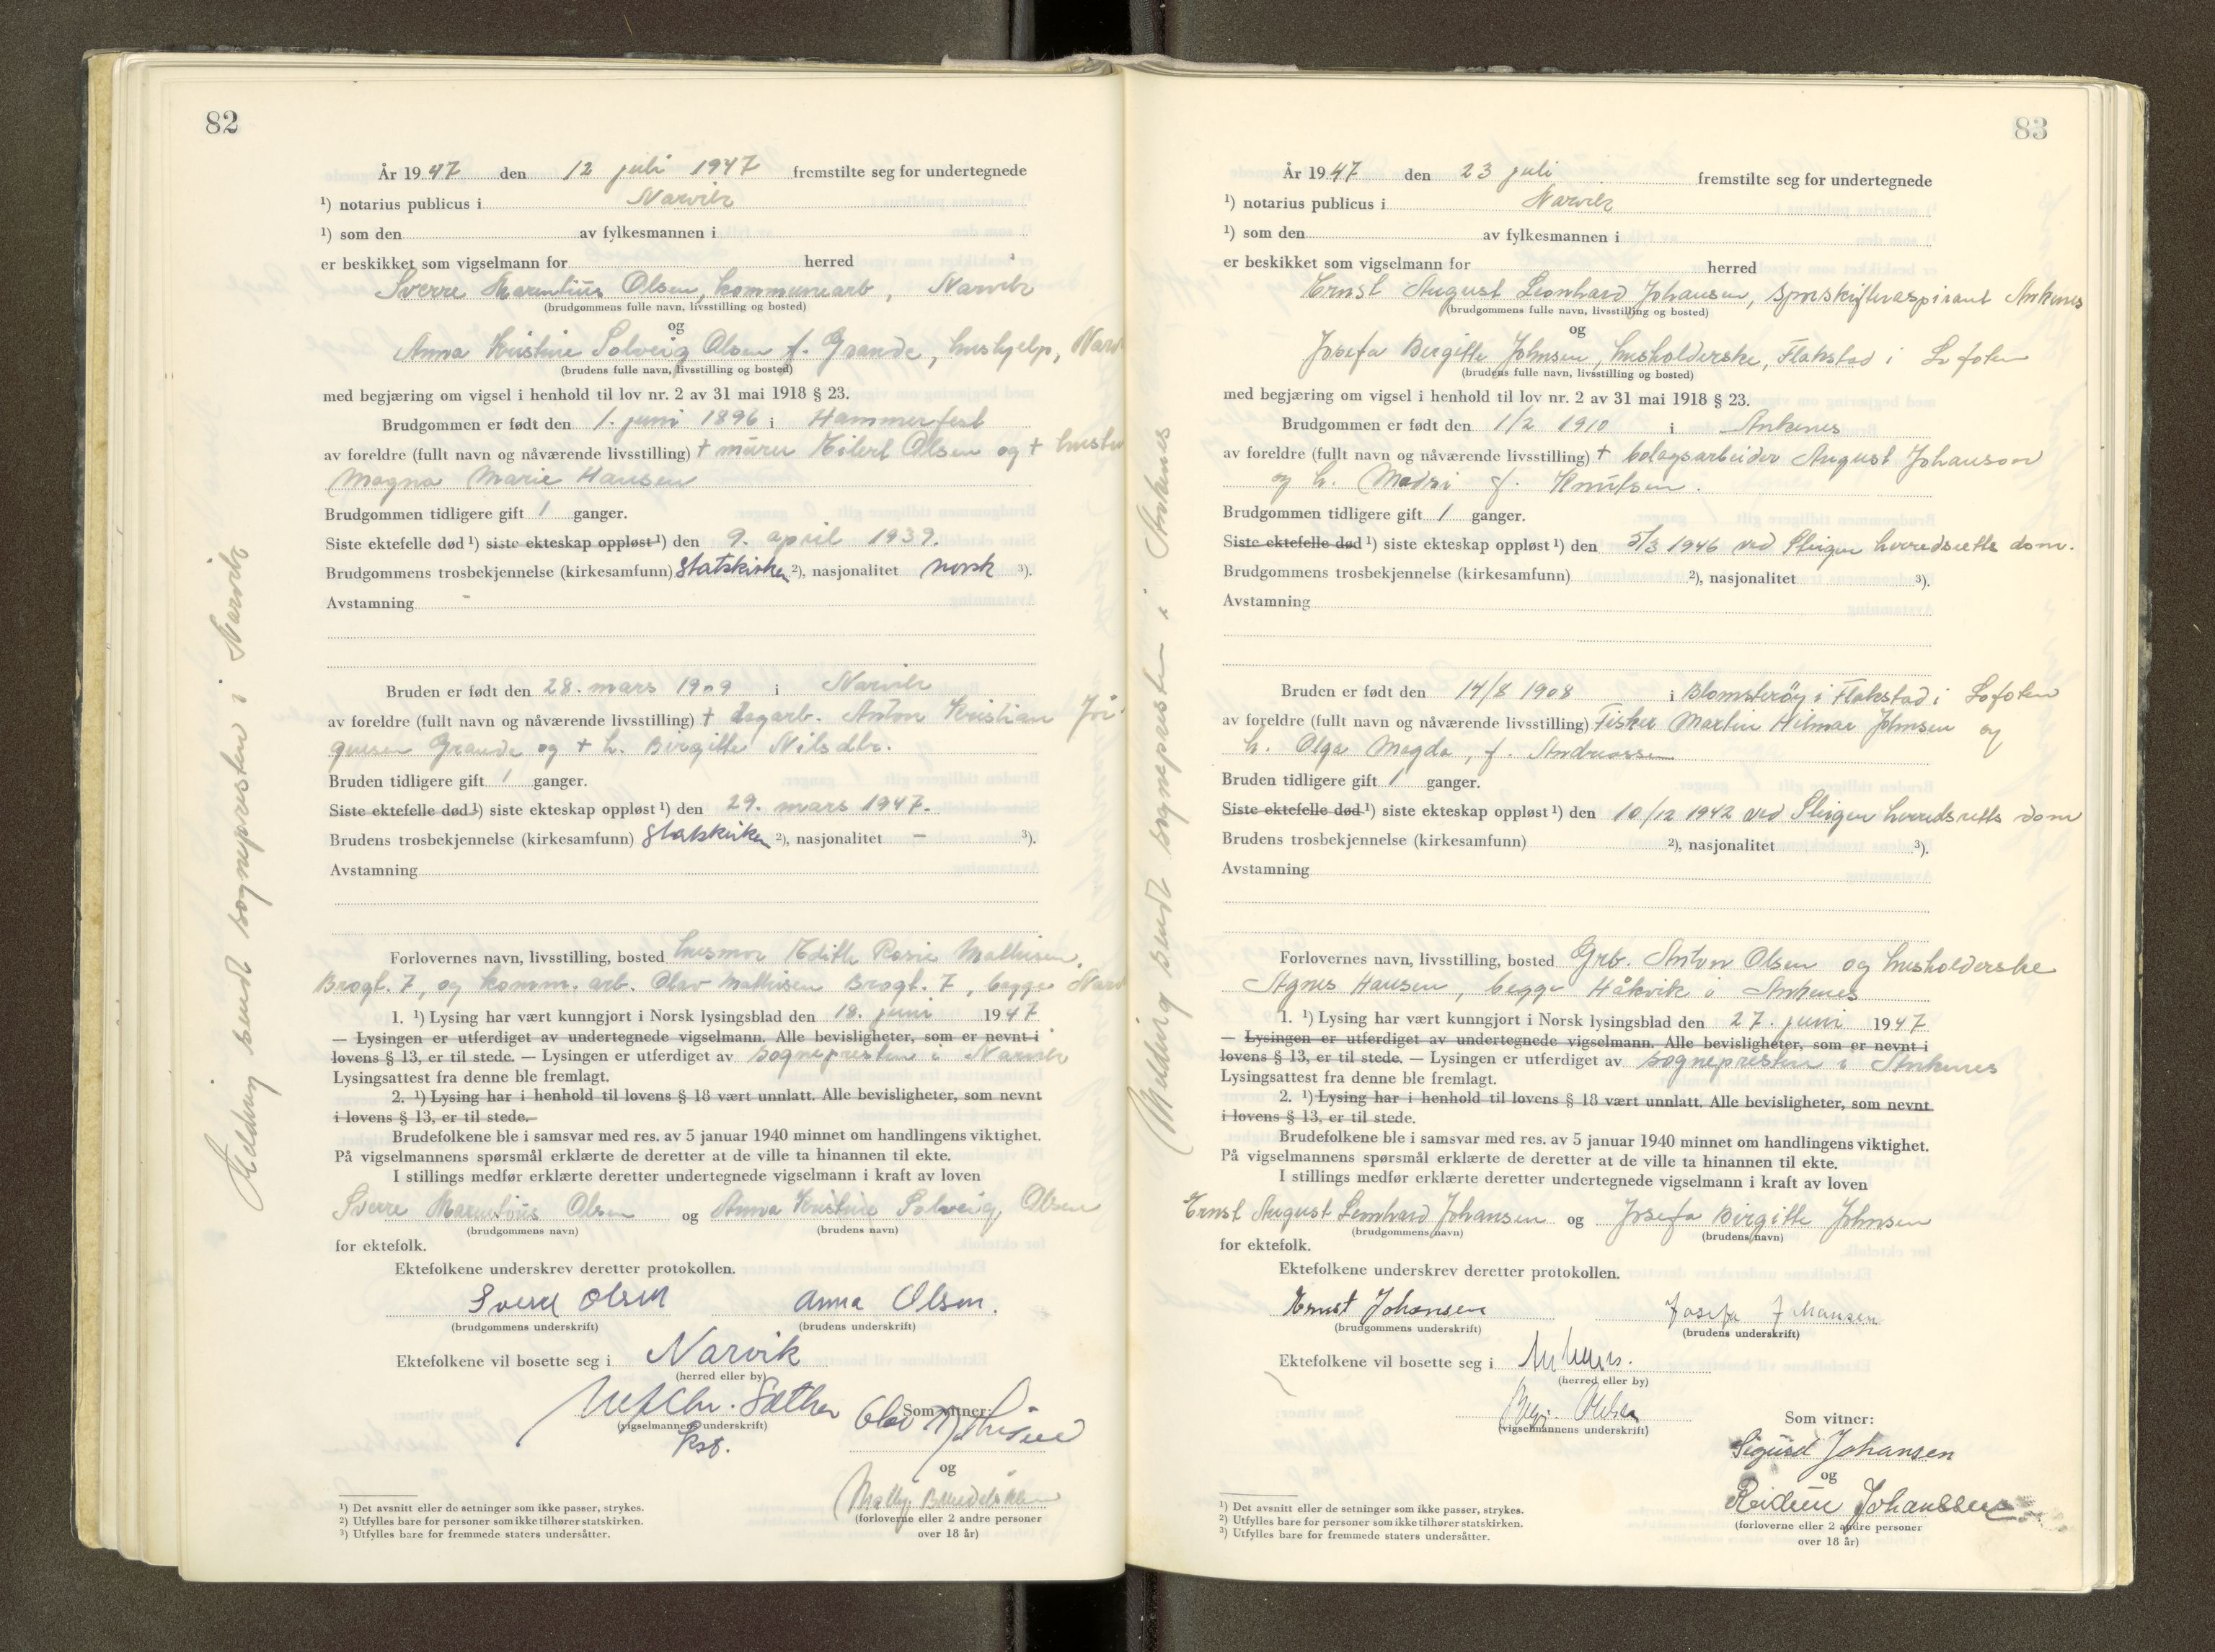 82
År 1947 den 12 juli 1947 fremstilte seg for undertegnede
¹) notarius publicus i Narvik
¹) som den av fylkesmannen i
er beskikket som vigselmann for herred
Sverre Olsen, kommunearb, Narvik
(brudgommens fulle navn, livsstilling og bosted)
og
Anna Kristine Solveig Olsen f. Grande, hushjelp,
(brudens fulle navn, livsstilling og bosted)
med begjæring om vigsel i henhold til lov nr. 2 av 31 mai 1918 § 23.
Brudgommen er født den 1. juni 1896 i Hammerfest
av foreldre (fullt navn og nåværende livsstilling) + murer Eilert Olsen og + hustru
Magna Marie Hansen
Brudgommen tidligere gift 1 ganger.
Siste ektefelle død ¹) siste ekteskap oppløst ¹) den 9. april 1939.
Brudgommens trosbekjennelse (kirkesamfunn) Statskirken ²), nasjonalitet norsk ³).
Avstamning -
Bruden er født den 28. mars 1909 i Narvik
av foreldre (fullt navn og nåværende livsstilling) + dagarb. Anton Kristian Jør-
gensen Grande og + h. Birgitte Nilsdtr.
Bruden tidligere gift 1 ganger.
Siste ektefelle død ¹) siste ekteskap oppløst ¹) den 29. mars 1947.
Brudens trosbekjennelse (kirkesamfunn) Statskirken ²), nasjonalitet - ³).
Avstamning
Forlovernes navn, livsstilling, bosted husmor Edith Rosie Mathisen,
Brogt. 7, og komm. arb. Olav Mathisen Brogt. 7, begge
1. ¹) Lysing har vært kunngjort i Norsk lysingsblad den 18. juni 1947
— Lysingen er utferdiget av undertegnede vigselmann. Alle bevisligheter, som er nevnt i
lovens § 13, er til stede. — Lysingen er utferdiget av sognepresten i Narvik
Lysingsattest fra denne ble fremlagt.
2. ¹) Lysing har i henhold til lovens § 18 vært unnlatt. Alle bevisligheter, som nevnt
i lovens § 13, er til stede.
Brudefolkene ble i samsvar med res. av 5 januar 1940 minnet om handlingens viktighet.
På vigselmannens spørsmål erklærte de deretter at de ville ta hinannen til ekte.
I stillings medfør erklærte deretter undertegnede vigselmann i kraft av loven
Sverre Olsen og Anna Kristine Solveig Olsen
(brudgommens navn) (brudens navn)
for ektefolk.
Ektefolkene underskrev deretter protokollen.
Sverre Olsen Anna Olsen.
(brudgommens underskrift) (brudens underskrift)
Ektefolkene vil bosette seg i Narvik
(herred eller by)
Som vitner:
Sæther Olav Mathisen
(vigselmannens underskrift)
og
Molly
(forloverne eller 2 andre personer
over 18 år)
¹) Det avsnitt eller de setninger som ikke passer, strykes.
²) Utfylles bare for personer som ikke tilhører statskirken.
³) Utfylles bare for fremmede staters undersåtter.
Melding sendt sognepresten i Narvik
83
År 1947 den 23 juli fremstilte seg for undertegnede
¹) notarius publicus i Narvik
¹) som den av fylkesmannen i
er beskikket som vigselmann for herred
Ernst August Leonhard Johansen, sporskifteraspirant Ankenes
(brudgommens fulle navn, livsstilling og bosted)
og
Josefa Birgitte Johnsen, husholderske, Flakstad i Lofoten
(brudens fulle navn, livsstilling og bosted)
med begjæring om vigsel i henhold til lov nr. 2 av 31 mai 1918 § 23.
Brudgommen er født den 1/2 1910 i Ankenes
av foreldre (fullt navn og nåværende livsstilling) + bolagsarbeider August Johanson
og h. Madsi f. Knutsen.
Brudgommen tidligere gift 1 ganger.
Siste ektefelle død ¹) siste ekteskap oppløst ¹) den 5/3 1946 ved Steigen herredsretts dom.
Brudgommens trosbekjennelse (kirkesamfunn) ²), nasjonalitet ³).
Avstamning
Bruden er født den 14/8 1908 i Blomsterøy i Flakstad i Lofoten
av foreldre (fullt navn og nåværende livsstilling) Fisker Martin Hilmar Johnsen og
h. Olga Magda, f. Andreassen
Bruden tidligere gift 1 ganger.
Siste ektefelle død ¹) siste ekteskap oppløst ¹) den 10/12 1942 ved Steigen herredsretts dom
Brudens trosbekjennelse (kirkesamfunn) ²), nasjonalitet ³).
Avstamning
Forlovernes navn, livsstilling, bosted Grb. Anton Olsen og husholderske
Agnes Hansen, begge Håkvik i Ankenes
1. ¹) Lysing har vært kunngjort i Norsk lysingsblad den 27. juni 1947
— Lysingen er utferdiget av undertegnede vigselmann. Alle bevisligheter, som er nevnt i
lovens § 13, er til stede. — Lysingen er utferdiget av sognepresten i Ankenes
Lysingsattest fra denne ble fremlagt.
2. ¹) Lysing har i henhold til lovens § 18 vært unnlatt. Alle bevisligheter, som nevnt
i lovens § 13, er til stede.
Brudefolkene ble i samsvar med res. av 5 januar 1940 minnet om handlingens viktighet.
På vigselmannens spørsmål erklærte de deretter at de ville ta hinannen til ekte.
I stillings medfør erklærte deretter undertegnede vigselmann i kraft av loven
Ernst August Leonhard Johansen og Josefa Birgitte Johnsen
(brudgommens navn) (brudens navn)
for ektefolk.
Ektefolkene underskrev deretter protokollen.
Ernst Johansen Josefa Johansen
(brudgommens underskrift) (brudens underskrift)
Ektefolkene vil bosette seg i Ankenes.
(herred eller by)
(vigselmannens underskrift)
Som vitner:
Sigurd Johansen
og
Reidun Johanssen
(forloverne eller 2 andre personer
over 18 år)
¹) Det avsnitt eller de setninger som ikke passer, strykes.
²) Utfylles bare for personer som ikke tilhører statskirken.
³) Utfylles bare for fremmede staters undersåtter.
Melding sendt sognepresten i Ankenes